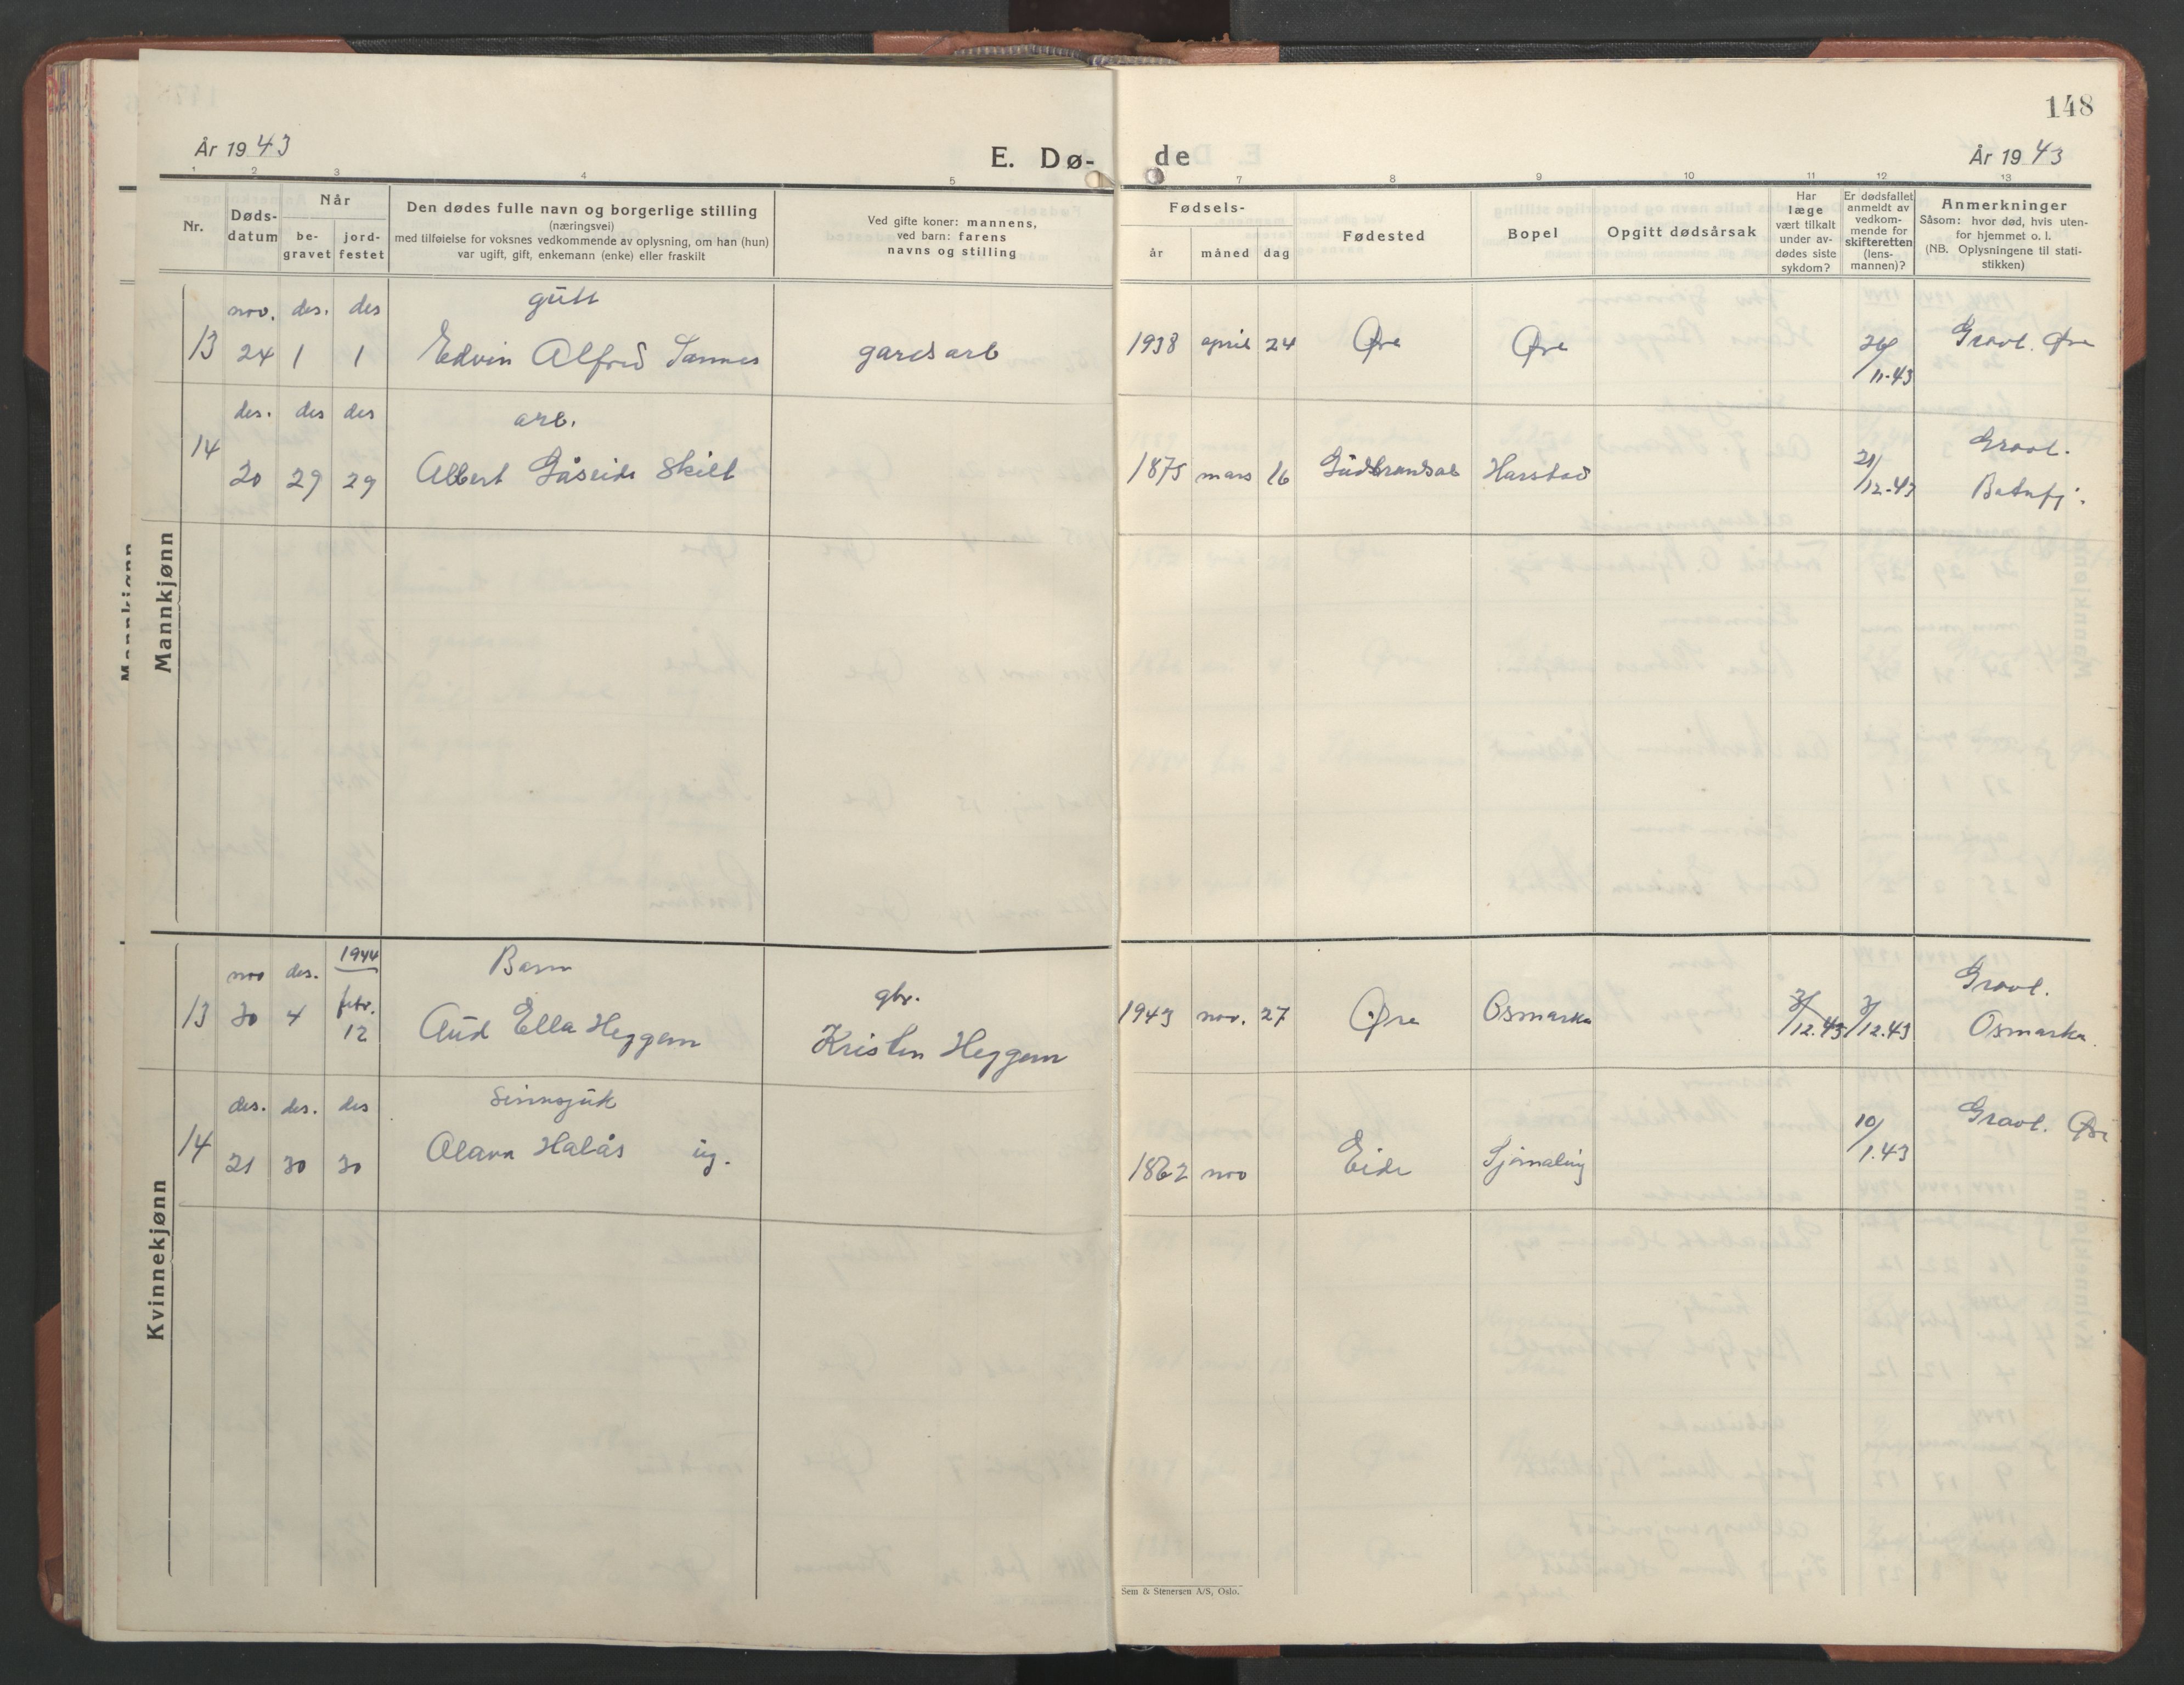 148
År 1943
E. Dø-
de
År 1943
1 2 3 4 5 7 8 9 10 11 12 13
Nr.
Døds-
datum
Når
be-
gravet
jord-
festet
Den dødes fulle navn og borgerlige stilling
(næringsvei)
med tilføielse for voksnes vedkommende av oplysning, om han (hun)
var ugift, gift, enkemann (enke) eller fraskilt
Ved gifte koner: mannens,
ved barn: farens
navns og stilling
Fødsels-
år måned dag
Fødested
Bopel
Opgitt dødsårsak
Har
læge
vært tilkalt
under av-
dødes siste
sykdom?
Er dødsfallet
anmeldt av
vedkom-
mende for
skifteretten
(lens-
mannen)?
Anmerkninger
Såsom: hvor død, hvis uten-
for hjemmet o. l.
(NB. Oplysningene til stati-
stikken)
Mannkjønn
nov. des. des gutt
13 24 1 1 Edvin Alfred Sannes gardsarb 1938 april 24 Øre Øre 26/11-43 Gravl. Øre
des. des des arb.
14 20 29 29 Albert Gåseide Skilt 1875 mars 16 Gudbrandsal Harstad 21/12-43 Gravl.
Batnfj.
Kvinnekjønn
nov des. 1944 Barn
13 30 4 febr. 12 Aud Ella Heggem gbr.
Kristen Heggem 1943 nov. 27 Øre Osmarka 3/12.43 3/12.43 Gravl.
Osmarka.
des. des. des sinnsjuk
14 21 30 30 Olava Halås ug. 1862 nov Eide Gjemnes 10/1.43 Gravl. Øre
Sem & Stenersen A/S, Oslo.